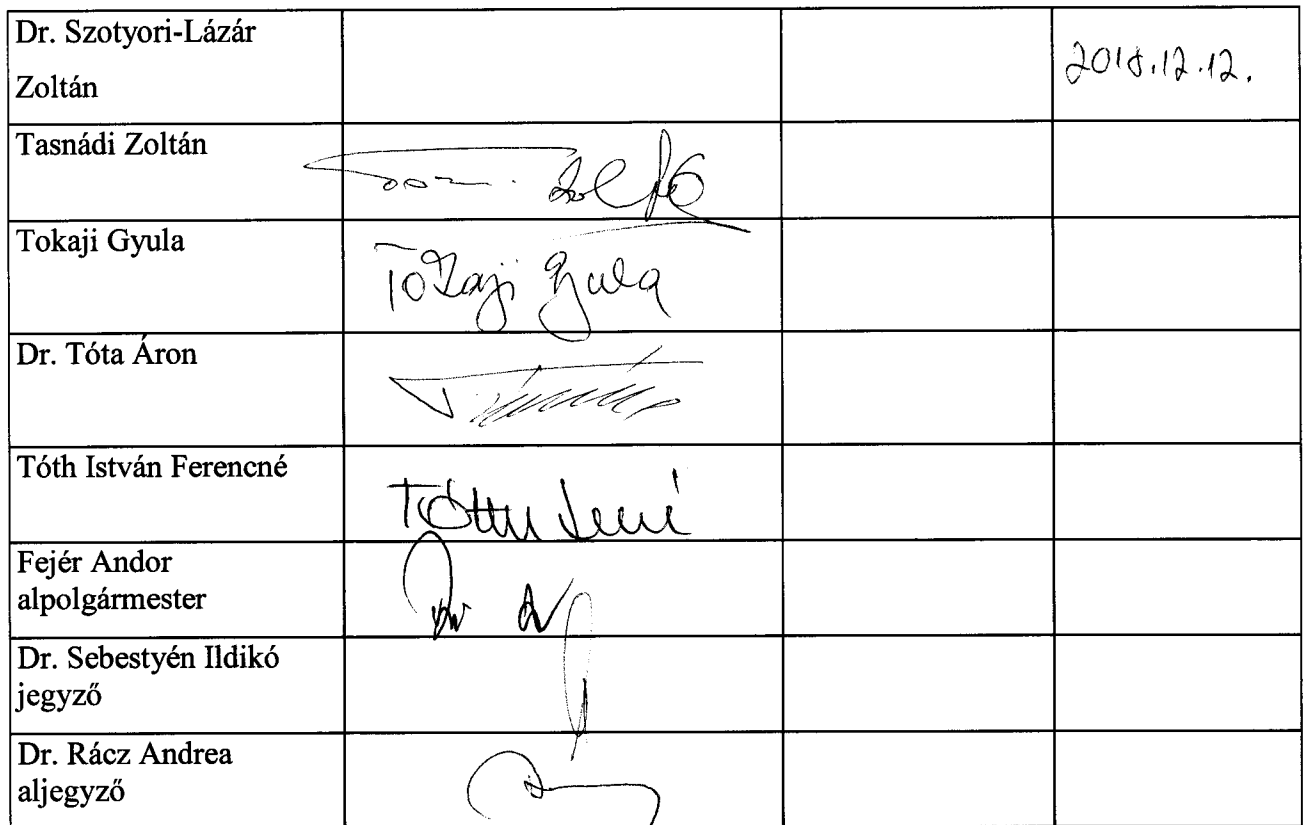 Dr. Szotyori-Lázár
Zoltán
2018.12.12.
Tasnádi Zoltán
Tokaji Gyula
Tokaji Gyula
Dr. Tóta Áron
Tóth István Ferencné
Fejér Andor
alpolgármester
Dr. Sebestyén Ildikó
jegyző
Dr. Rácz Andrea
aljegyző